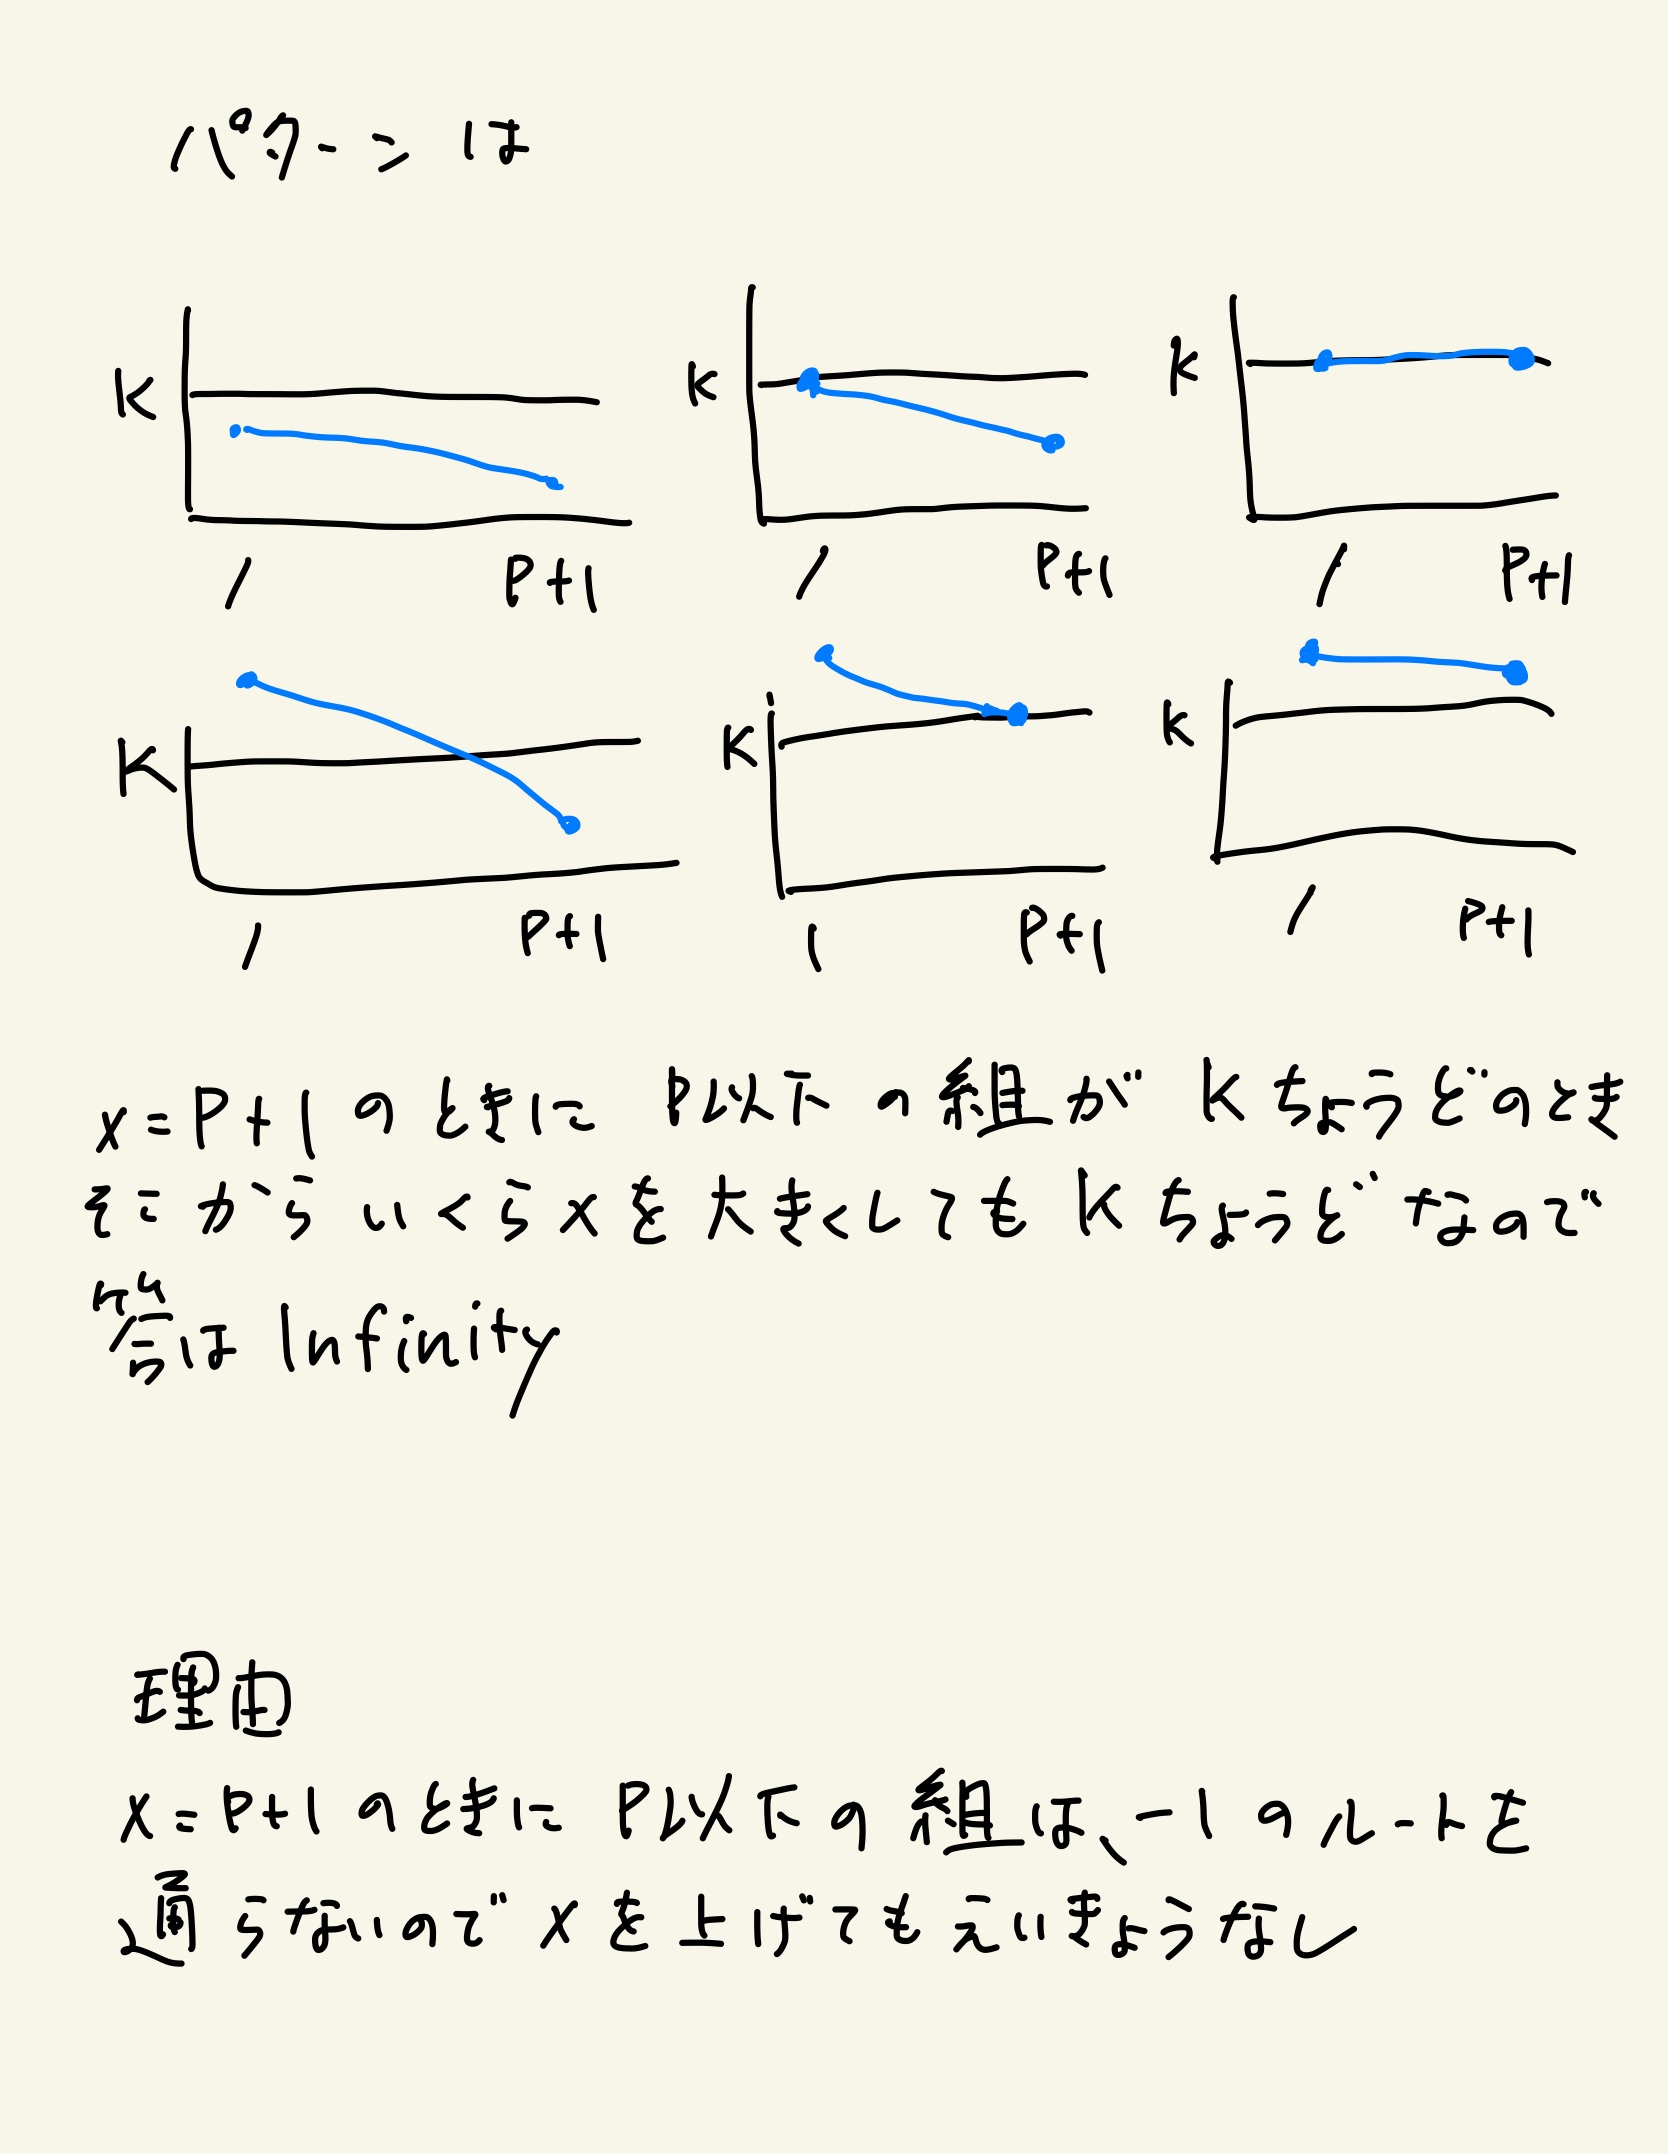 パターンは
K K K
1 P+1 1 P+1 1 P+1
K K K
1 P+1 1 P+1 1 P+1
x=P+1のときに P以下の組が Kちょうどのとき
そこからいくらxを大きくしてもKちょうどなので
答はInfinity
理由
x=P+1のときに P以下の組は、-1のルートを
通らないのでxを上げてもえいきょうなし